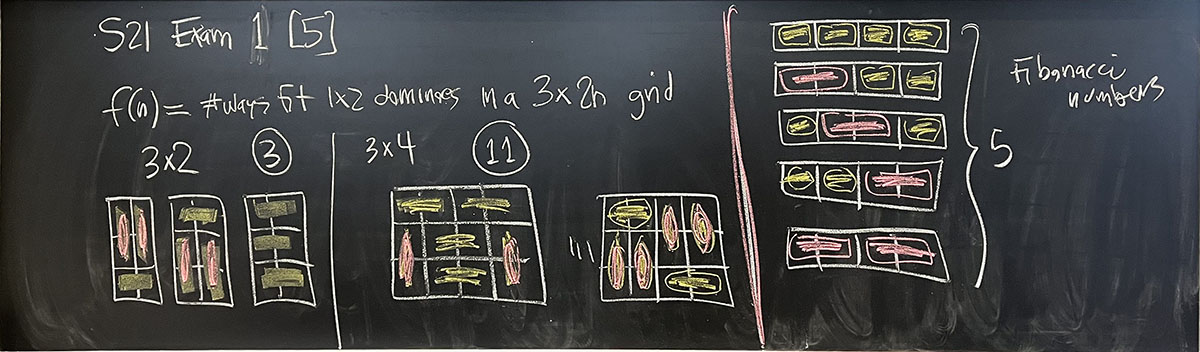 S21 Exam 1 [5]
f(n) = # ways fit 1x2 dominoes in a 3x2n grid
3x2 3
3x4 11
5
Fibonacci
numbers